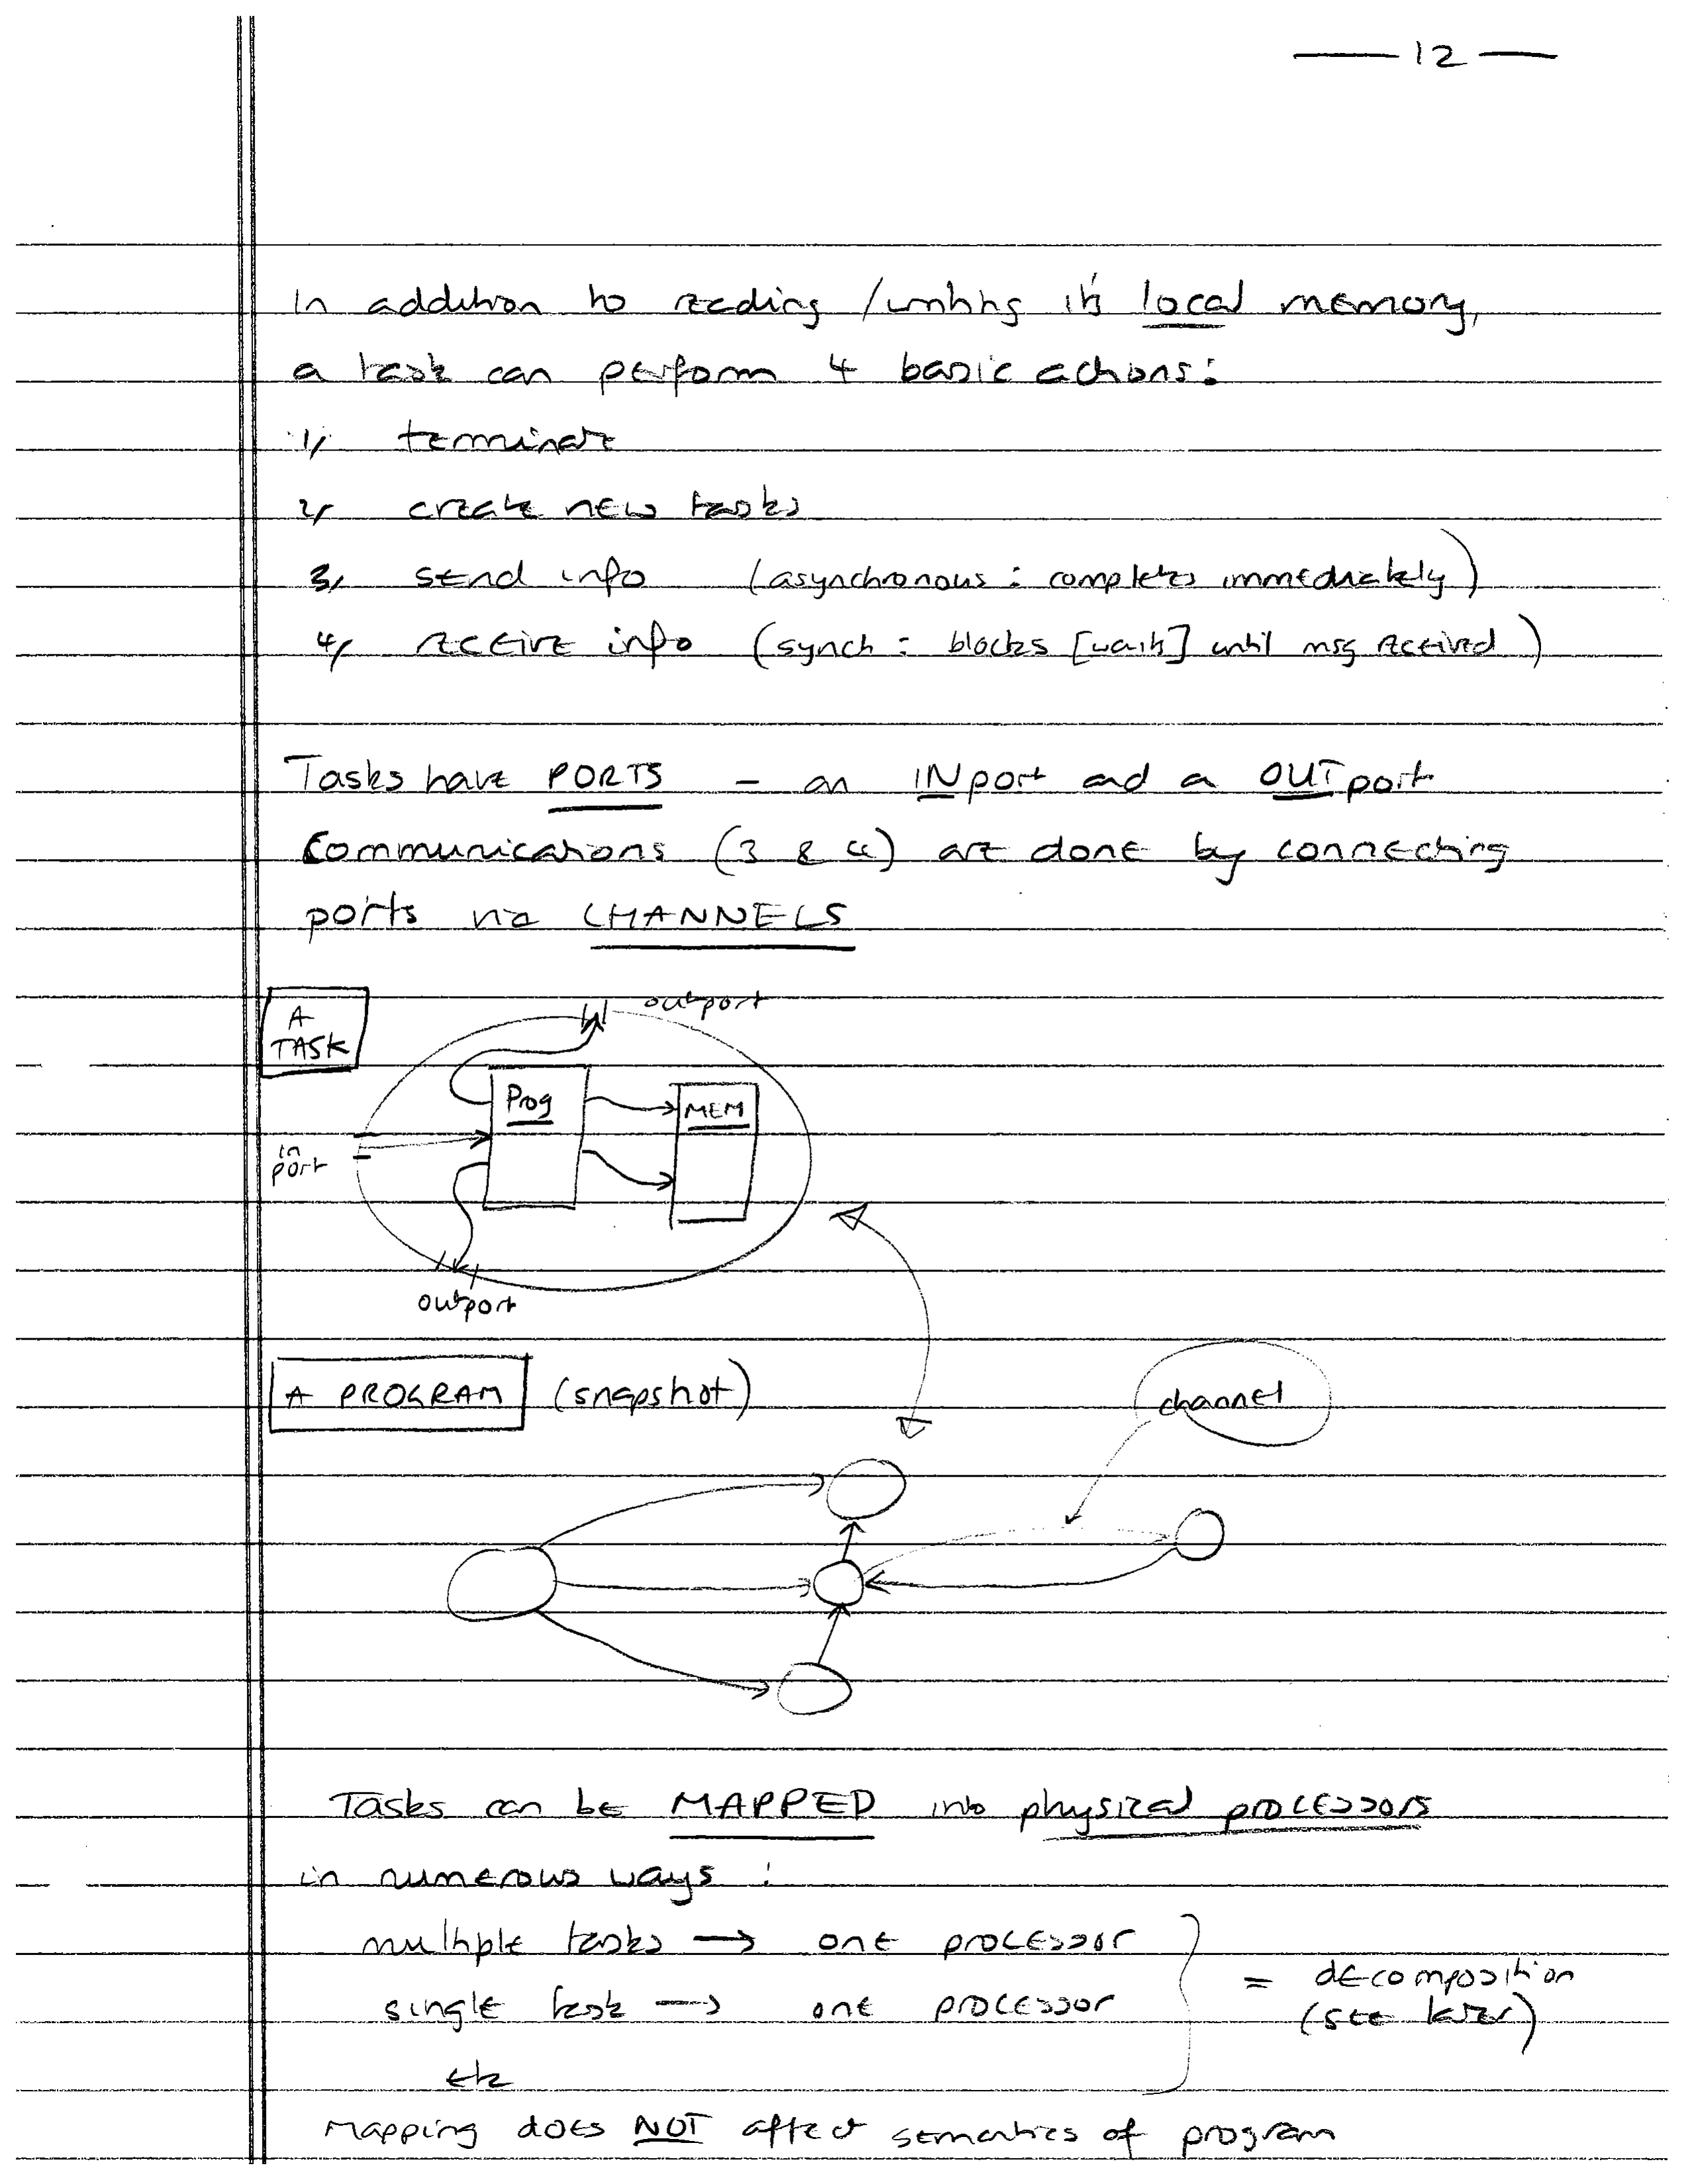 — 12 —
In addition to reading / writing its local memory,
a task can perform 4 basic actions:
1, terminate
2, create new tasks
3, send info (asynchronous : completes immediately)
4, receive info (synch : blocks [waits] until msg received)
Tasks have PORTS - an INport and a OUTport
Communications (3 & 4) are done by connecting
ports via CHANNELS
A
TASK
outport
Prog
MEM
in
port
outport
A PROGRAM (snapshot)
channel
Tasks can be MAPPED into physical processors
in numerous ways :
multiple tasks → one processor
single task → one processor
= decomposition
(see later)
etc
Mapping does NOT affect semantics of program